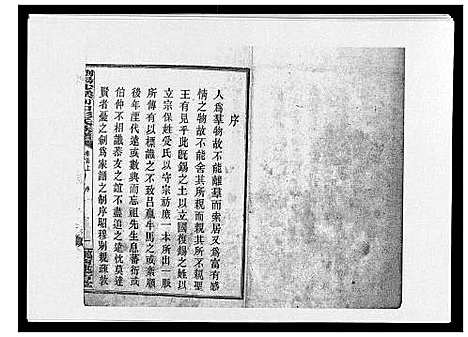 序
人爲羣物故不能離羣而索居又爲富有感
情之物故不能舍其所親而不親聖
王有見乎此既錫之土以立國復錫之姓以
立宗保姓受氏以守宗祊庶一本所出一脈
所傳有以標識之不致呂嬴牛馬之或紊顧
後年湮代遠或數典而忘祖先生息蕃衍或
伯仲不相識恭友之誼不盡追之莫達
賢者憂之創爲家譜之制序昭穆别親疎敦